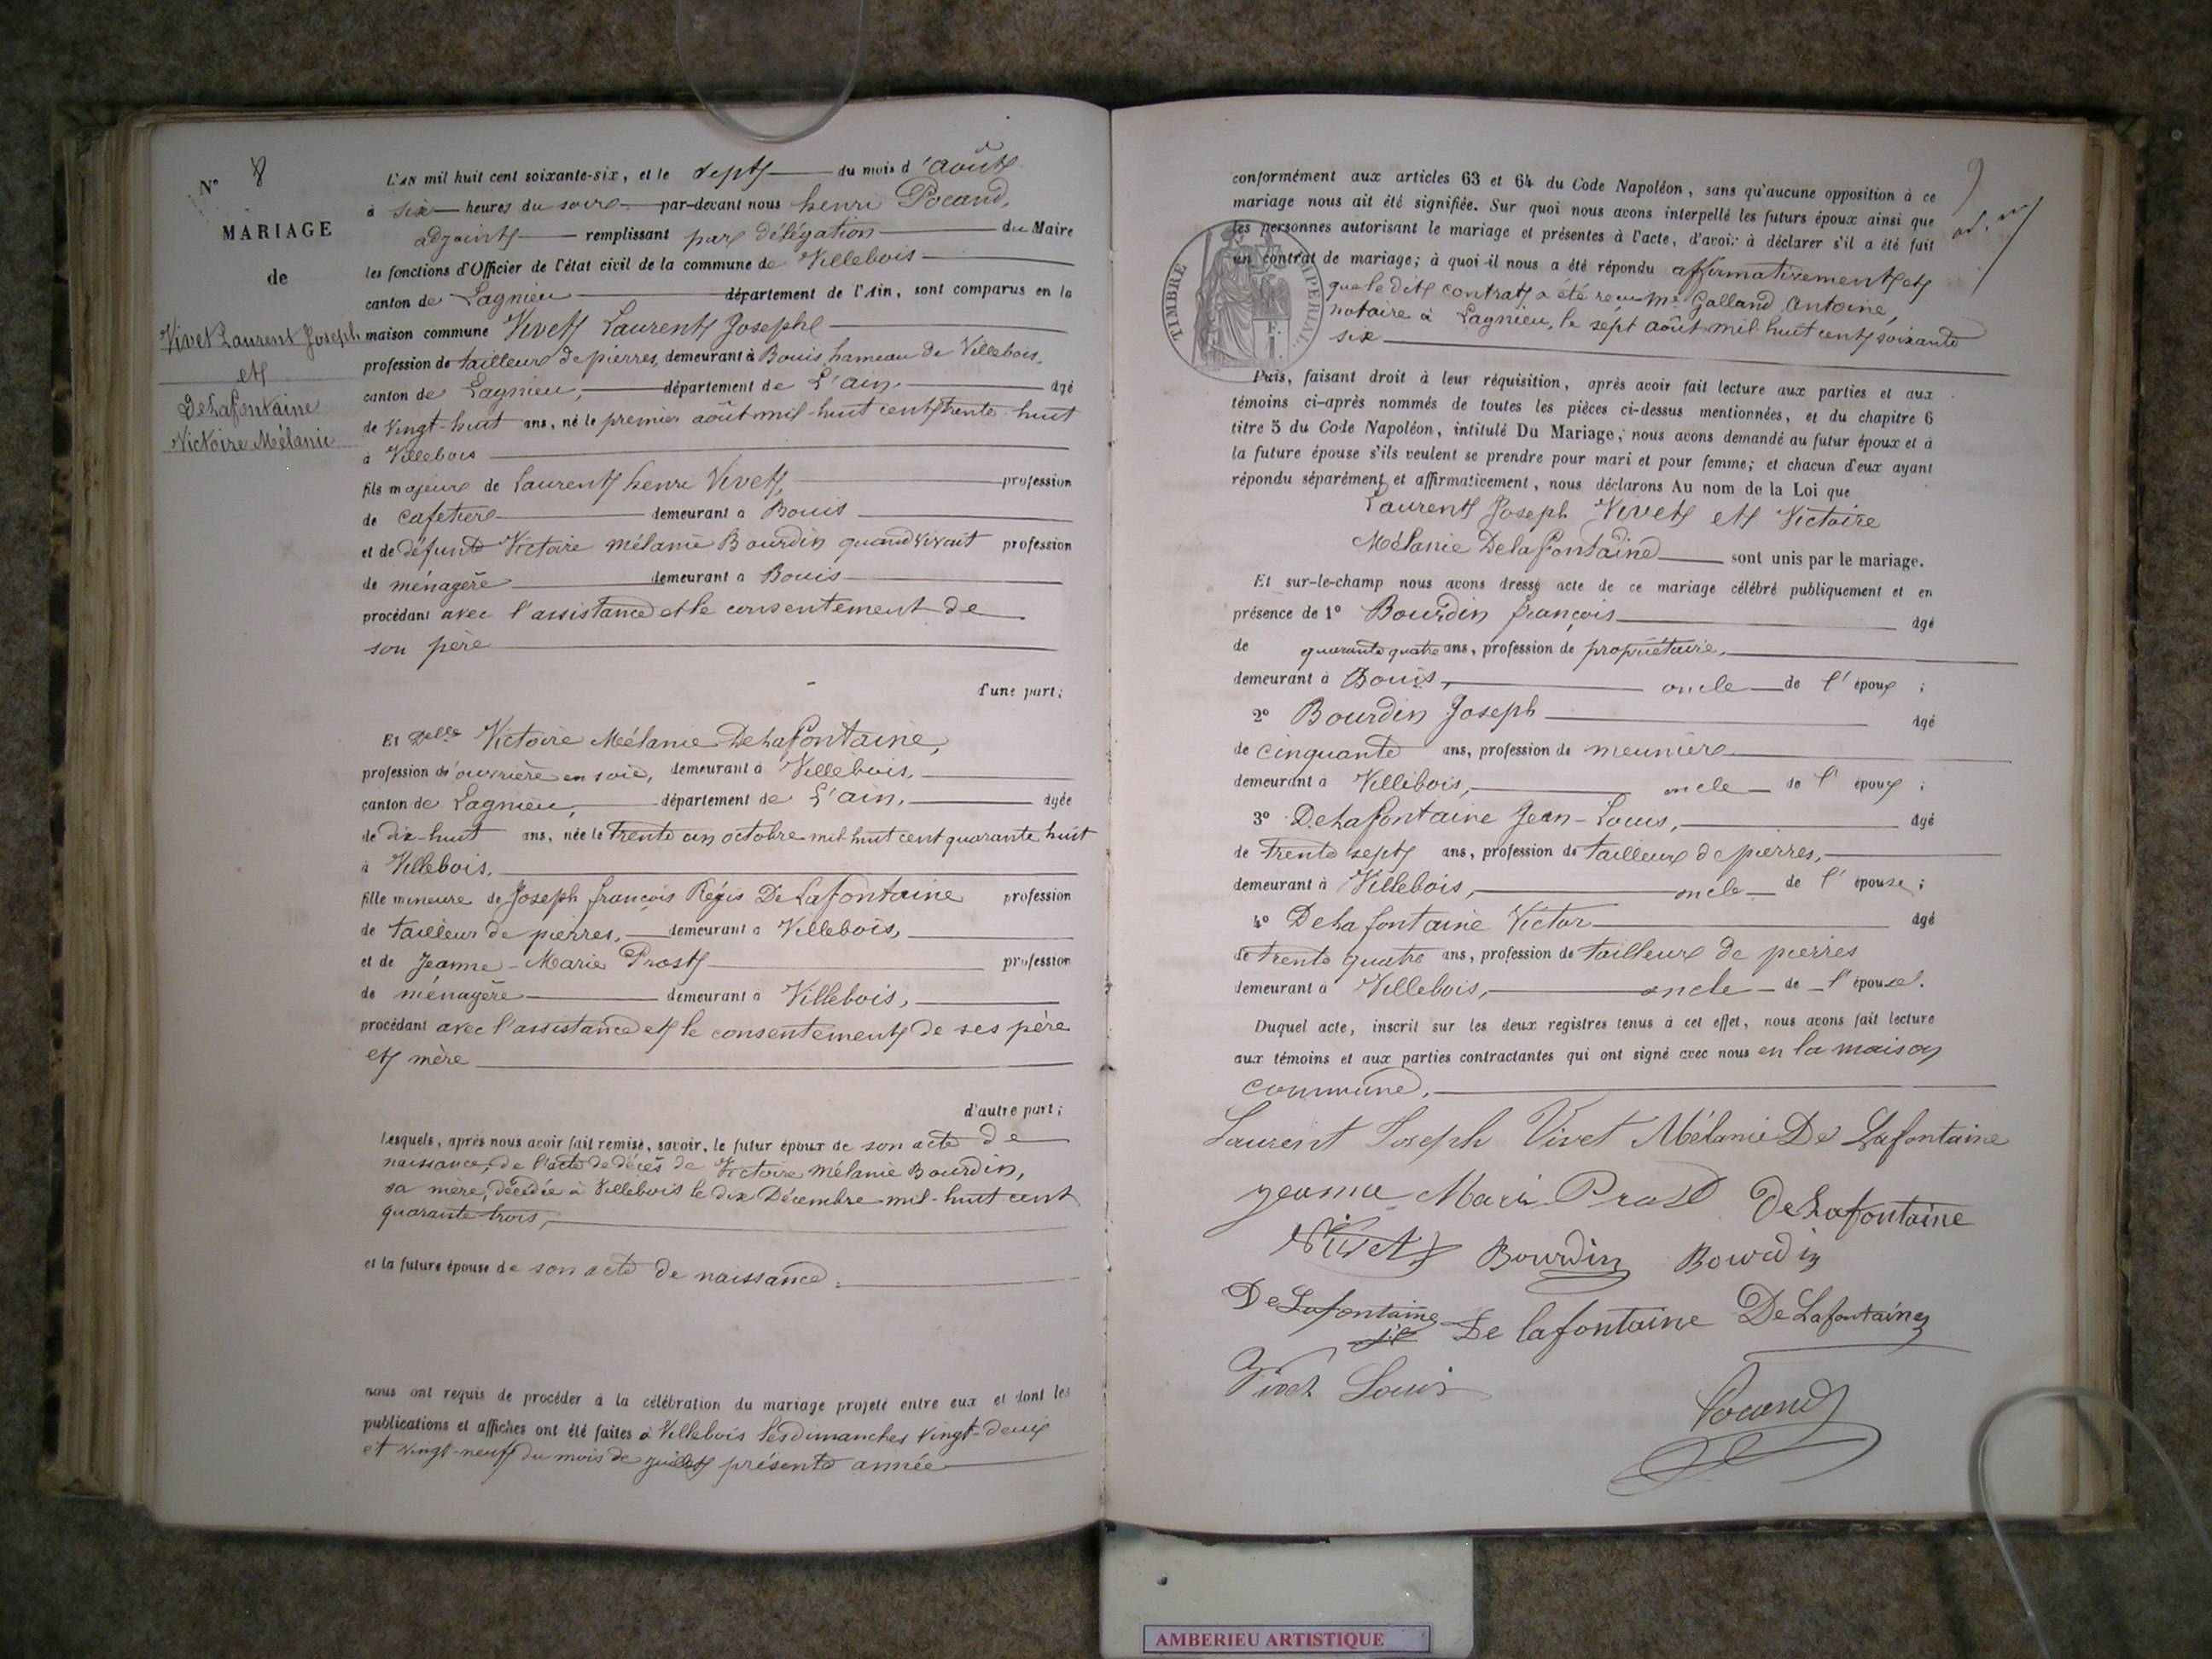 N° 8
MARIAGE
de
Vivet Laurent Joseph
et
DeLafontaine
Victoire Mélanie
L'AN mil huit cent soixante-six, et le sept du mois d'août
à six heures du soir par-devant nous henri Pocand,
adjoint remplissant par délégation du Maire
les fonctions d'Officier de l'état civil de la commune de Villebois
canton de Lagnieu département de l'Ain, sont comparus en la
maison commune Vivet Laurent Joseph
profession de tailleur de pierres, demeurant à Bouis, hameau de Villebois,
canton de Lagnieu, département de L'ain âgé
de vingt-huit ans, né le premier août mil huit cent trente huit
à Villebois
fils majeur de Laurent henri Vivet, profession
de cafetier demeurant à Bouis
et de défunte Victoire mélanie Bourdin quand vivait profession
de ménagère demeurant à Bouis
procédant avec l'assistance et le consentement de
son père
d'une part;
Et Delle Victoire Mélanie DeLafontaine,
profession d'ouvrière en soie, demeurant à Villebois,
canton de Lagnieu, département de L'ain, âgée
de dix-huit ans, née le trente un octobre mil huit cent quarante huit
à Villebois,
fille mineure de Joseph françois Régis DeLafontaine profession
de tailleur de pierres, demeurant à Villebois,
et de Jeanne-Marie Prost profession
de ménagère demeurant à Villebois,
procédant avec l'assistance et le consentement de ses père
et mère
d'autre part;
Lesquels, après nous avoir fait remise, savoir, le futur époux de son acte de
naissance, de l'acte de décès de Victoire mélanie Bourdin,
sa mère, décédée à Villebois le dix Décembre mil-huit cent
quarante-trois,
et la future épouse de son acte de naissance.
nous ont requis de procéder à la célébration du mariage projeté entre eux et dont les
publications et affiches ont été faites à Villebois les dimanches vingt-deux
et vingt-neuf du mois de juillet présente année
conformément aux articles 63 et 64 du Code Napoléon, sans qu'aucune opposition à ce
mariage nous ait été signifiée. Sur quoi nous avons interpellé les futurs époux ainsi que
les personnes autorisant le mariage et présentes à l'acte, d'avoir à déclarer s'il a été fait
un contrat de mariage; à quoi il nous a été répondu affirmativement et
que le dit contrat a été reçu Me Galland Antoine,
notaire à Lagnieu, le sept août mil huit cent soixante
six
TIMBRE IMPERIAL
Puis, faisant droit à leur réquisition, après avoir fait lecture aux parties et aux
témoins ci-après nommés de toutes les pièces ci-dessus mentionnées, et du chapitre 6
titre 5 du Code Napoléon, intitulé Du Mariage, nous avons demandé au futur époux et à
la future épouse s'ils veulent se prendre pour mari et pour femme; et chacun d'eux ayant
répondu séparément et affirmativement, nous déclarons Au nom de la Loi que
Laurent Joseph Vivet et Victoire
Mélanie DeLafontaine sont unis par le mariage.
Et sur-le-champ nous avons dressé acte de ce mariage célébré publiquement et en
présence de 1° Bourdin françois âgé
de quarante quatre ans, profession de propriétaire,
demeurant à Bouis, oncle de l'époux ;
2° Bourdin Joseph âgé
de cinquante ans, profession de meunier
demeurant à Villebois, oncle de l'époux ;
3° DeLafontaine Jean-Louis, âgé
de trente sept ans, profession de tailleur de pierres,
demeurant à Villebois, oncle de l'épouse ;
4° DeLafontaine Victor âgé
de trente quatre ans, profession de tailleur de pierres
demeurant à Villebois, oncle de l'épouse.
Duquel acte, inscrit sur les deux registres tenus à cet effet, nous avons fait lecture
aux témoins et aux parties contractantes qui ont signé avec nous en la maison
commune.
Laurent Joseph Vivet Mélanie De Lafontaine
jeanne Marie Prost DeLafontaine
Vivet Bourdin Bourdin
DeLafontaine De lafontaine DeLafontaine
Louis
Pocand
AMBERIEU ARTISTIQUE